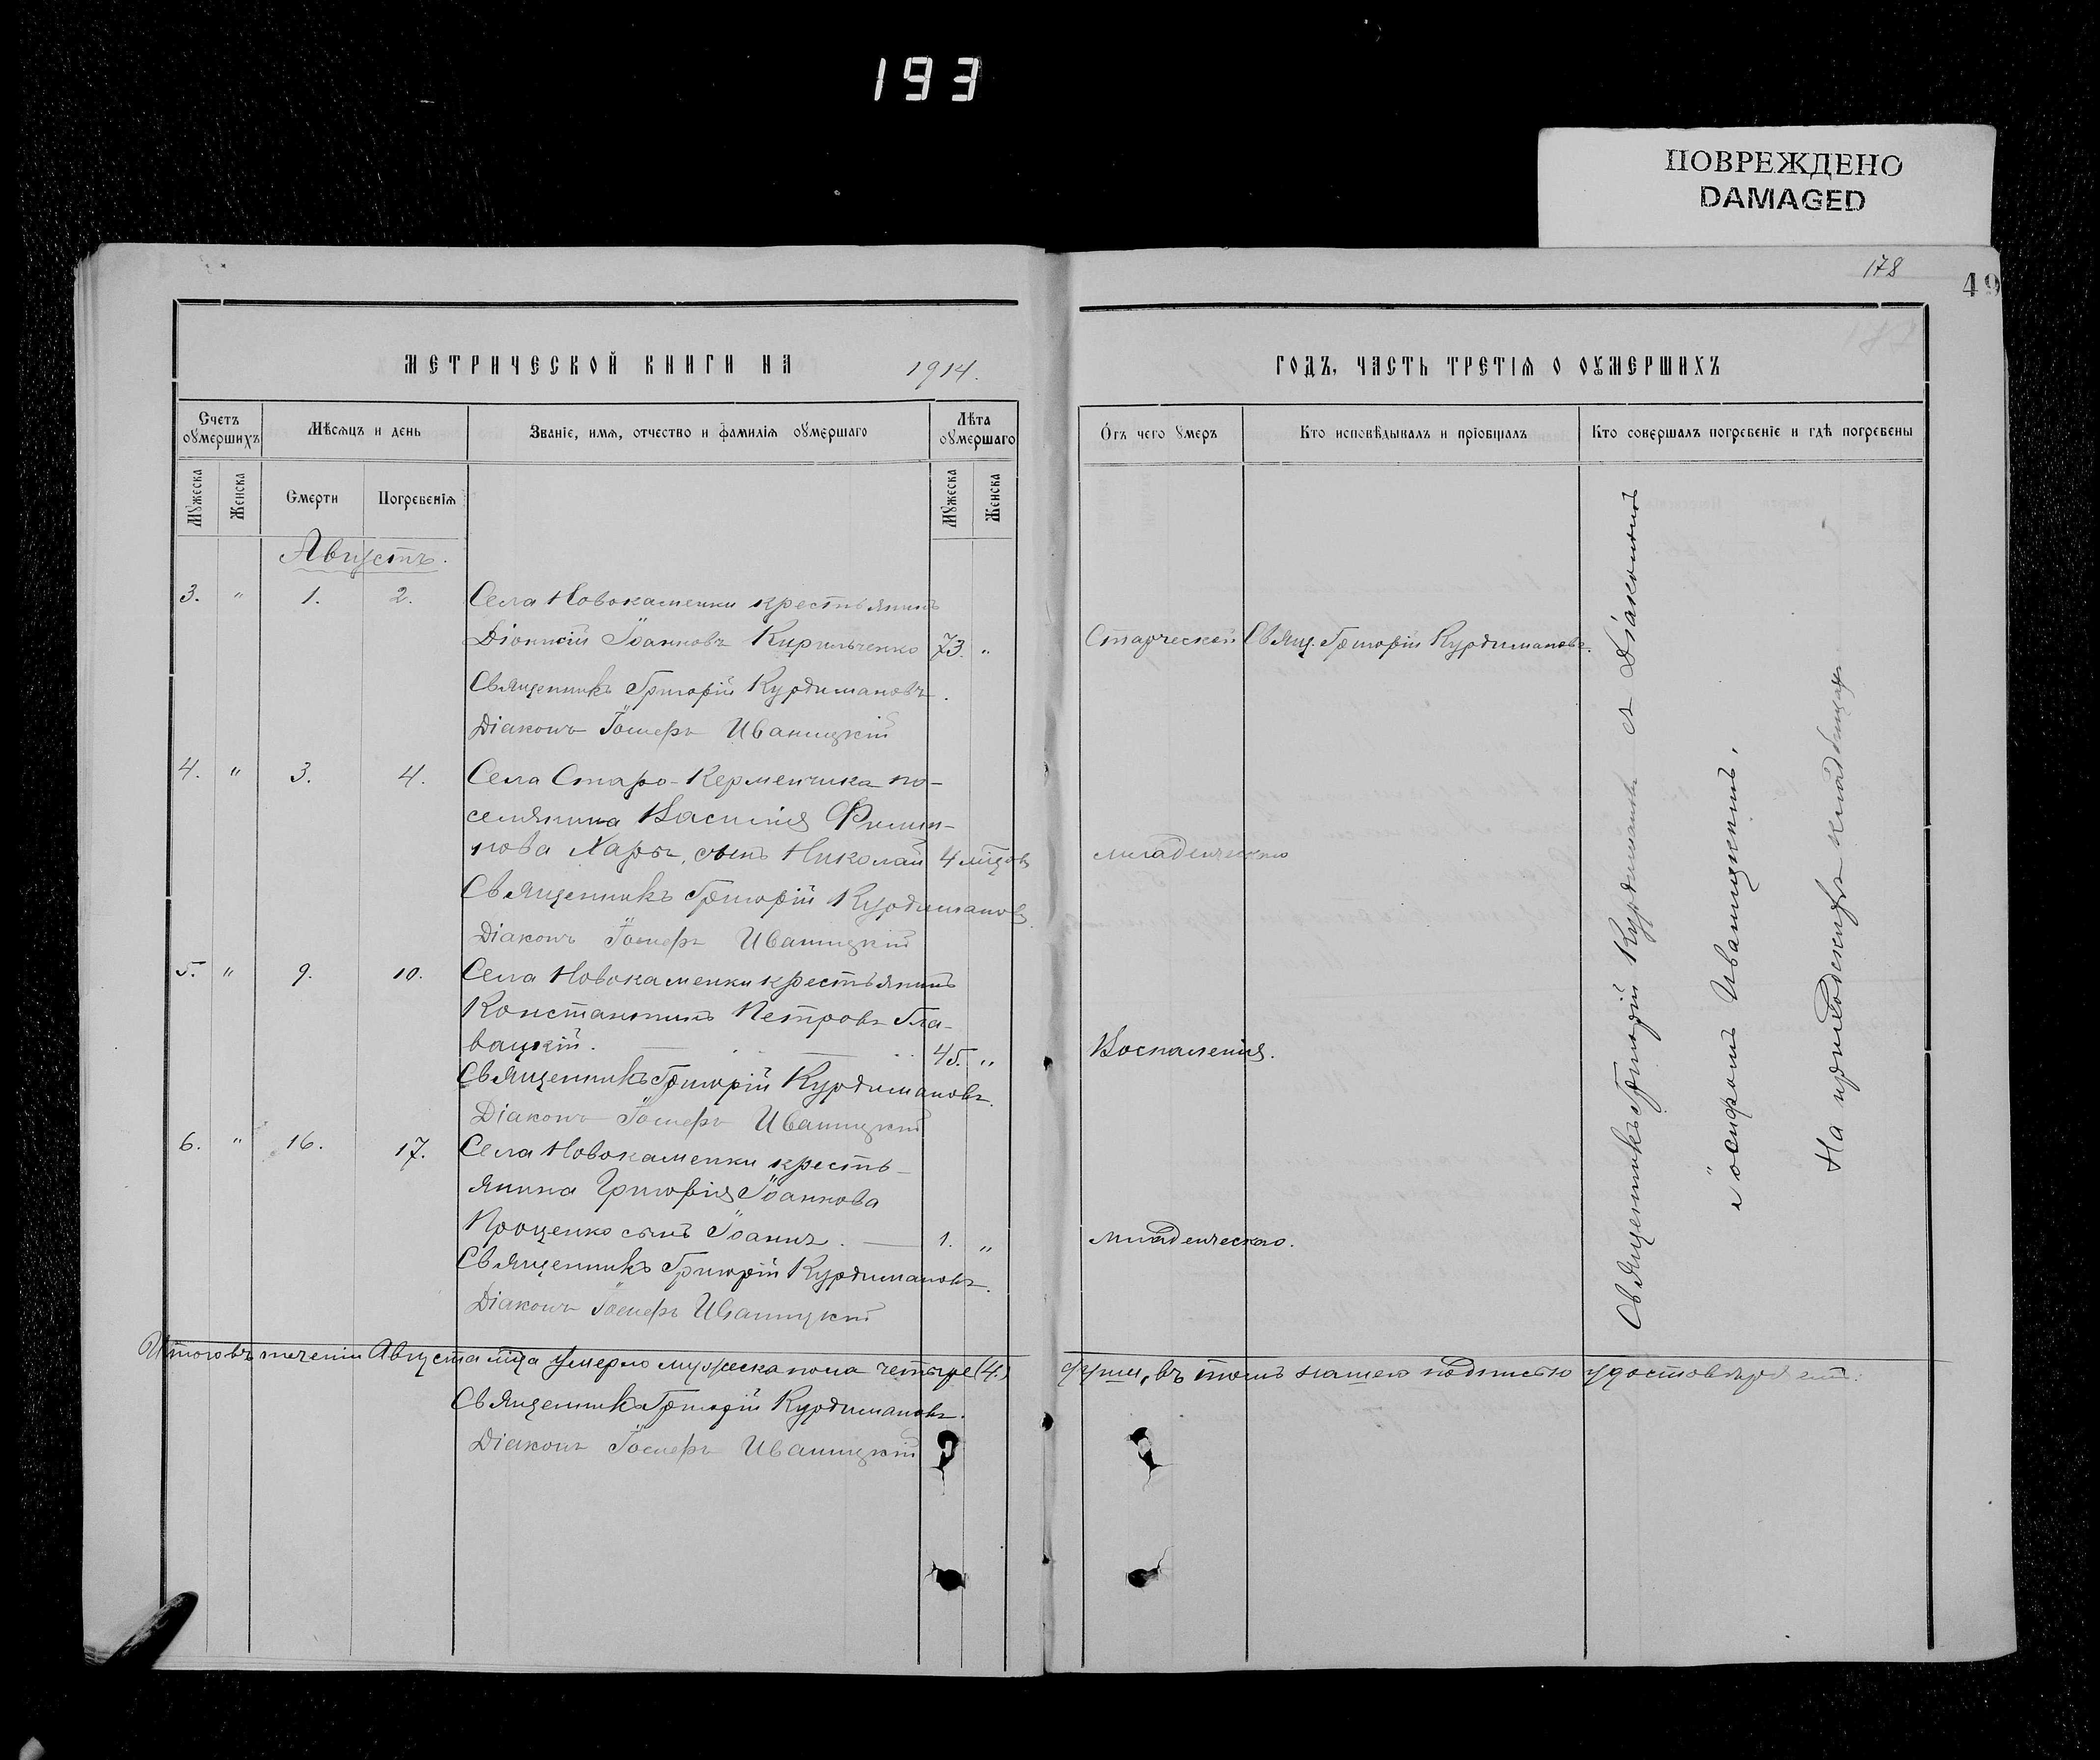 193
ПОВРЕЖДЕНО
DAMAGED
178
49
МЕТРИЧЕСКОЙ КНИГИ НА 1914.
ГОДЪ, ЧАСТЬ ТРЕТІѦ О ОУМЕРШИХЪ
Счетъ оумершихъ
Мѣсяцъ и день
Званіе, имя, отчество и фамилія оумершаго
Лѣта оумершаго
Отъ чего умеръ
Кто исповѣдывалъ и пріобщалъ
Кто совершалъ погребеніе и гдѣ погребены
Мужеска
Женска
Смерти
Погребенія
Мужеска
Женска
Августъ.
3. " 1. 2. Села Новокаменки крестьянинъ
Діонисій Іоанновъ Кирильченко 73. " Старческой Свящ. Григорій Курдимановъ.
Священникъ Григорій Курдимановъ.
Діаконъ Іосифъ Иваницкій
4. " 3. 4. Села Старо-Керменчика по-
селянина Василія Филип-
пова Хары, сынъ Николай 4 мѣцовъ младенческаго
Священникъ Григорій Курдимановъ
Діаконъ Іосифъ Иваницкій
5. " 9. 10. Села Новокаменки крестьянинъ
Константинъ Петровъ Гла-
вацкій. 45. " Воспаленія.
Священникъ Григорій Курдимановъ.
Діаконъ Іосифъ Иваницкій
6. " 16. 17. Села Новокаменки кресть-
янина Григорія Іоаннова
Проценко сынъ Іоаннъ. 1. " младенческаго.
Священникъ Григорій Курдимановъ.
Діаконъ Іосифъ Иваницкій
Священникъ Григорій Курдимановъ съ Діакономъ
Іосифомъ Иваницкимъ.
На приходскомъ кладбищѣ
Итого въ теченіи Августа мца умерло мужеска пола четыре (4.) души, въ томъ нашею подписью удостовѣряемъ:
Священникъ Григорій Курдимановъ.
Діаконъ Іосифъ Иваницкій